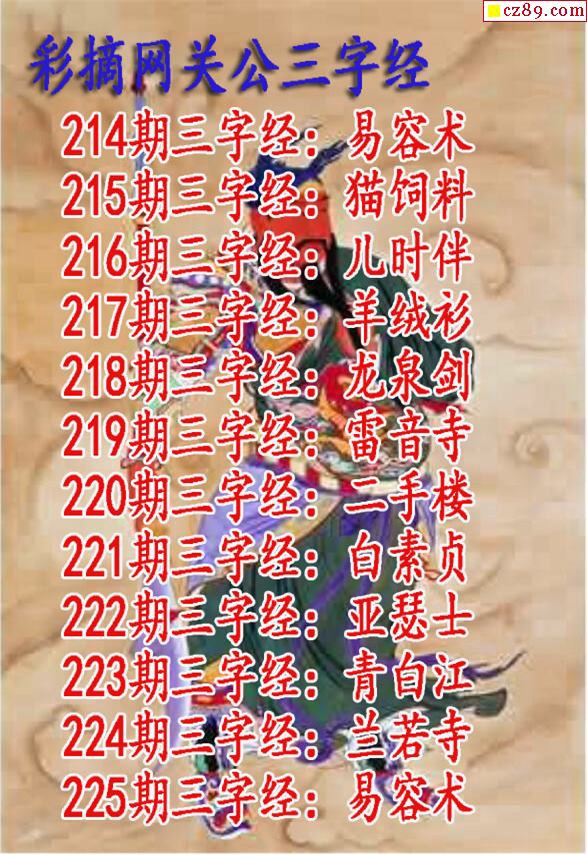 cz89.com
彩摘网关公三字经
214期三字经：易容术
215期三字经：猫饲料
216期三字经：儿时伴
217期三字经：羊绒衫
218期三字经：龙泉剑
219期三字经：雷音寺
220期三字经：二手楼
221期三字经：白素贞
222期三字经：亚瑟士
223期三字经：青白江
224期三字经：兰若寺
225期三字经：易容术